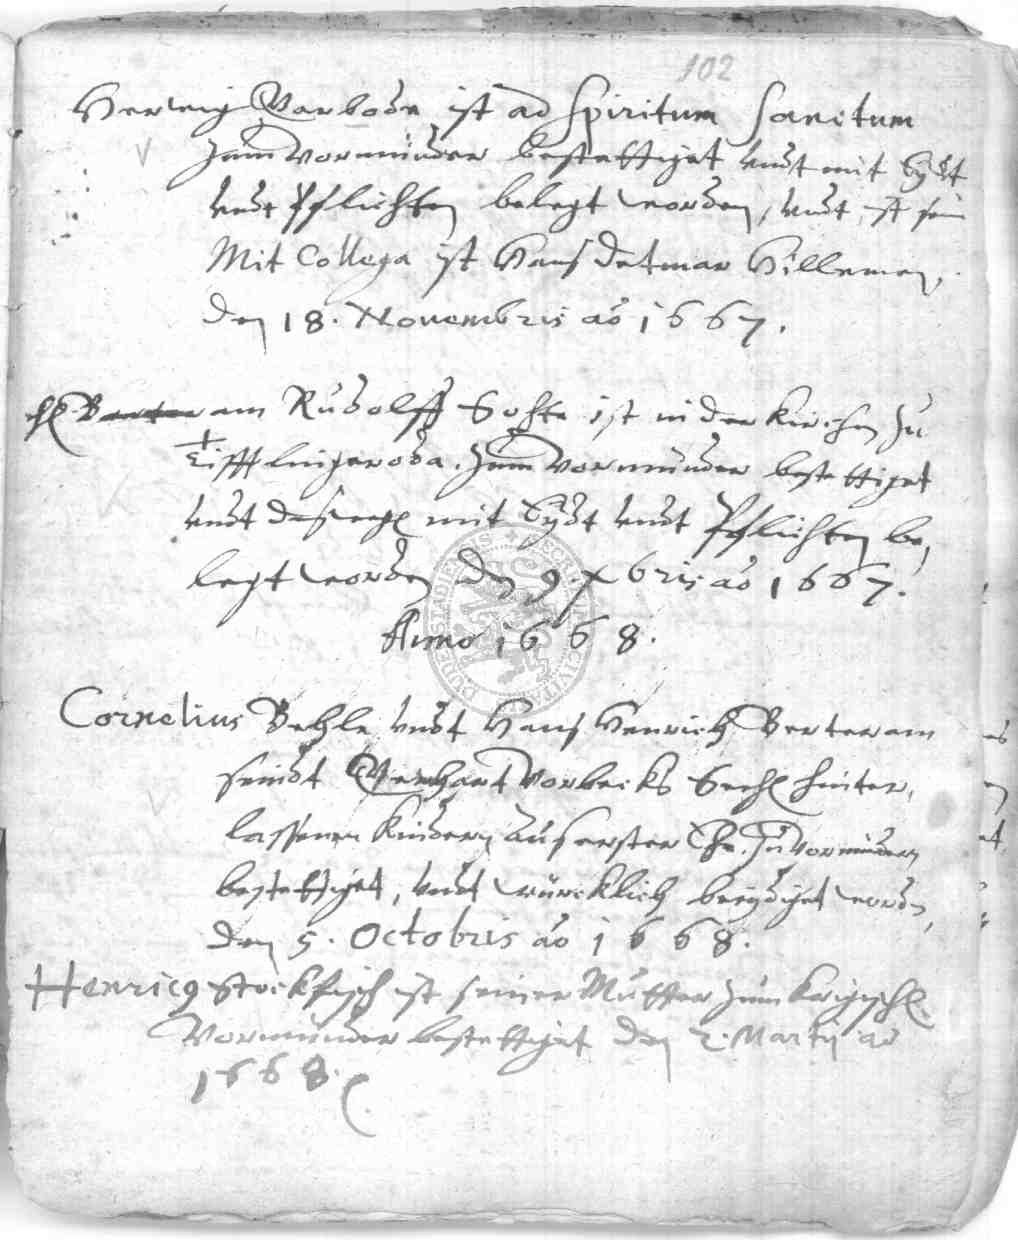 102
Herwig Warbode ist ad Spiritum Sanctum
zum Vormunder bestettiget undt mit Eydt
undt Pflichten belegt worden, undt ist sein
Mit Collega ist Hans Detmar Hillemen,
den 18. Novembris ao 1667.
am Rudolff Sohte ist in der Kirchen zu
Tifftlingeroda. zum Vormunder bestettiget
undt mit Eydt undt Pflichten be,
legt worden den 9 Xbris ao 1667.
Anno 1668.
Cornelius Behle undt Hans Henrich Berteram
seindt Gerhart Vorbecks Sehl hinter,
lassenen Kindern aus erster Ehe. zu Vormundern
bestettiget, undt würcklich beeydiget worden,
den 5. Octobris ao 1668.
Henricq Stockfisch ist seiner Mutter zum
Vormunder bestettiget den 2. Martij ao
1668.